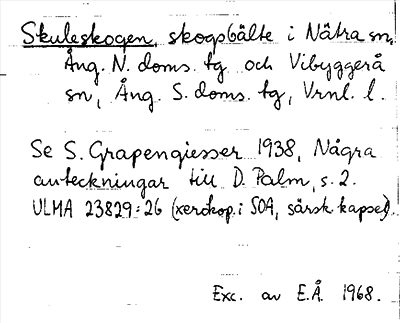 Skuleskogen, skogsbälte i Nätra sn,
Ång. N. doms. tg och Vibyggerå
sn, Ång. S. doms. tg, Vrnl. l.
Se S. Grapengiesser 1938, Några
anteckningar till D. Palm, s. 2.
ULMA 23829:26 (xerokop. i SOA, särsk kapsel).
Exc. av E.Å. 1968.